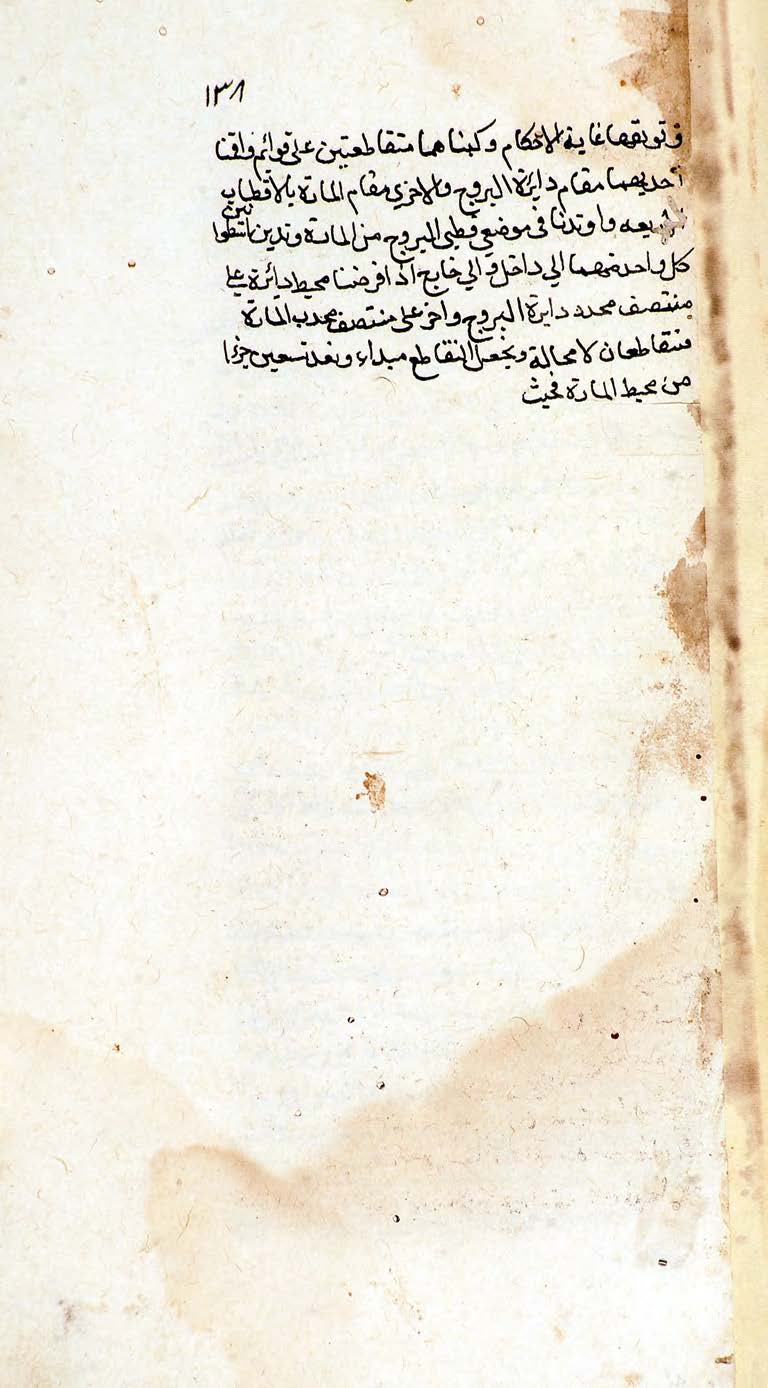 ١٣٨
وتوثقهما غاية الاحكام وركبناهما متقاطعتين على قوائم واقمنا
احديهما مقام دايرة البروج والاخرى مقام المارة بالاقطاب
واوتدنا في موضعي قطبي البروج من المارة وتدين ناتئين
كل واحد منهما الي داخل والي خارج اذا فرضنا محيط دائرة علي
منتصف محدد دايرة البروج واخر على منتصف محدب المارة
فتقاطعان لا محالة ونجعل التقاطع مبداء وبعد تسعين جزءا
من محيط المارة فحيث